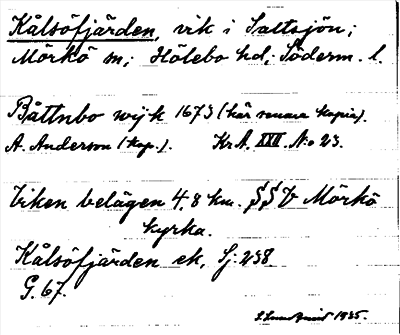 Kålsöfjärden, vik i Saltsjön;
Mörkö sn; Hölebo hd; Söderm. l.
Båttnbo wijk 1673 (här senare kopia).
A. Anderson (kop.). Kr.A. XXII. N:o 23.
Viken belägen 4,8 km. SSV Mörkö
kyrka.
Kålsöfjärden ek, Sj: 238.
G. 67.
1935.